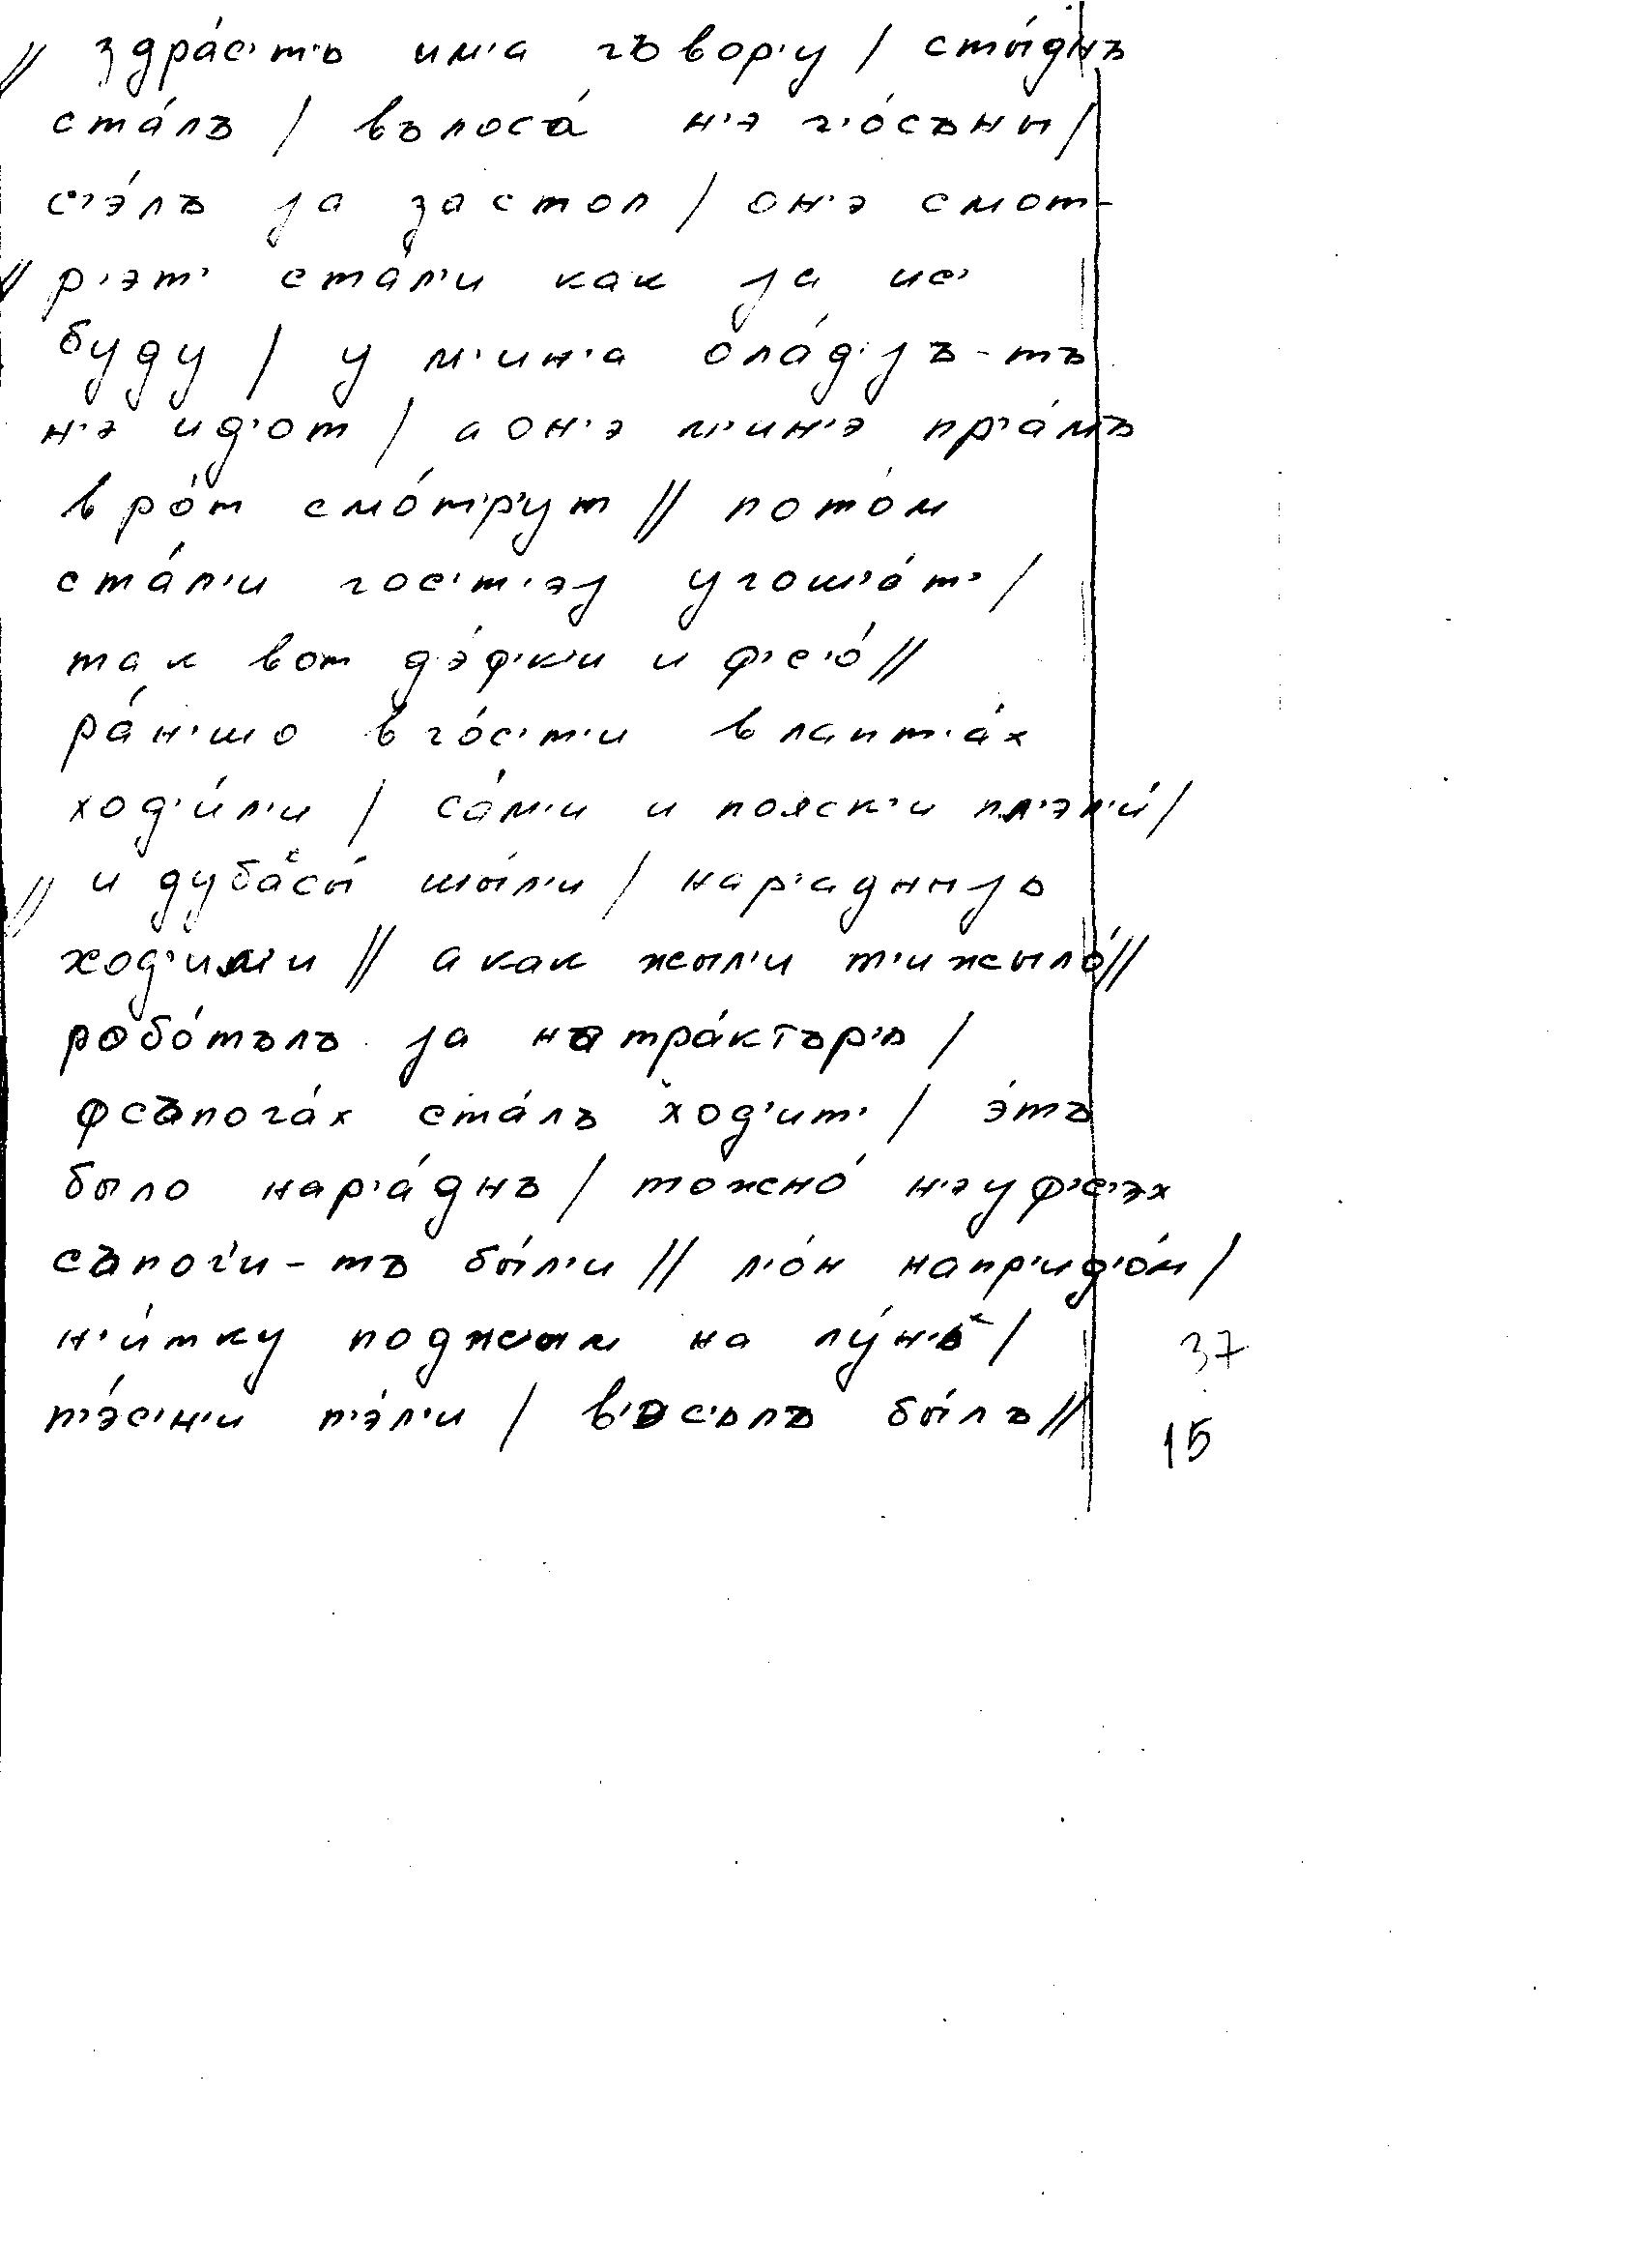 // здра́с'т'ъ им'а гъвор'у / сты́днъ
ста́лъ / вълоса́ н'э ч'о́съны /
с'э́лъ jа застол / он'э смот-
// р'эт' ста́л'и как jа ис'
буду / у м'ин'а ола́д'jъ-тъ
н'э ид'от / а он'э м'ин'э пр'а́мъ
в ро́т смо́тр'ут // пото́м
ста́л'и гос'т'эj угош'а́т' /
так вот дэ́ф'к'и и ф'с'о́ //
ра́н'шо в го́с'т'и в лапт'а́х
ход'и́л'и / са́м'и и поясk'и пл'эл'и́ /
// и дуба́сы́ шы́л'и / нар'адныjъ
ход'ил'и // а как жыл'и т'ижыло́ //
робо́тълъ jа натра́ктър'ъ /
фсъпога́х ста́лъ ход'ит' / э́тъ
было нар'а́днъ / тожно́ н'эуф'с'эх
съпог'и-тъ бы́л'и // л'о́н напр'ид'о́м /
н'и́тку поджым на лу́н'ъ /
п'э́с'н'и п'э́л'и / в'эс'ълъ бы́лъ //
37
15